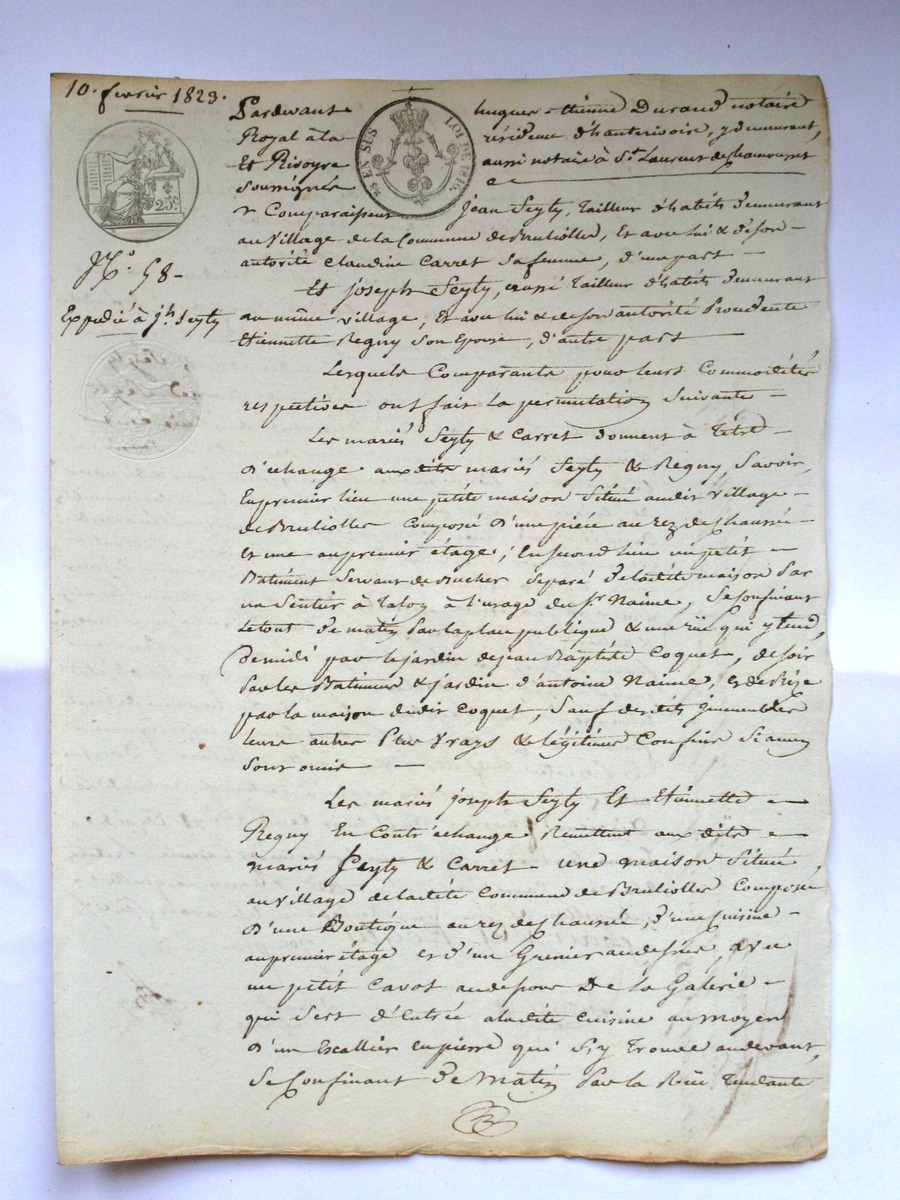 10. fevrier 1823.
Pardevant hugues-etienne Durand notaire
Royal à la résidence d'hauterivoire, y demeurant,
Et Rivoyre aussi notaire à St Laurent de Chamousset
Soussignés
EN SUS
LOI DE 1816.
25c
Comparaissent Jean Seyty, Tailleur d'habits demeurant
au Village de la Commune de Brullioller, Et avec lui & de son
autorité Claudine Carret sa femme, d'une part
N.o 58
Et joseph Seyty, aussi Tailleur d'habits demeurant
Expédié à jh Seyty
au même village, Et avec lui & de son autorité
Etiennette Regny son Epouse, d'autre part
Lesquels Comparants pour leurs Commodités
respectives ont fait la permutation Suivante
Les mariés Seyty & Carret donnent à Titre
d'échange aux dits mariés Seyty & Regny, Savoir,
En premier lieu une petite maison Situé audit Village
de Brullioller Composé d'une pièce au rez de chaussée
Et une au premier étage; En second lieu un petit
Batiment Servant de Bucher Séparé de ladite maison par
un Sentier à Talon à l'usage du Sr Naime, Se Confinant
Le tout de matin Par la place publique & une rüe qui y tend,
De midi par le jardin de jean Baptiste Coquet, de soir
Par les Batimens & jardin d'antoine Naime, & de Bize
par la maison dudit Coquet, Sauf desdits immeubles
leurs autres Plus Vrays & légitimes Confins Si aucun
Sont omis
Les mariés joseph Seyty Et Etiennette
Regny En Contr'échange Remettent aux dits
mariés Seyty & Carret une maison Situé
au Village de ladite Commune de Brullioller Composé
d'une Boutique au rez de Chaussée, d'une Cuisine
au premier étage et d'un Grenier au dessus, avec
un petit Cavot au dessous De la Galerie
qui Sert d'Entrée à ladite Cuisine au moyen
d'un Escallier en pierre qui S'y Trouve au devant,
Se Confinant de Matin Par la Rüe Tendante